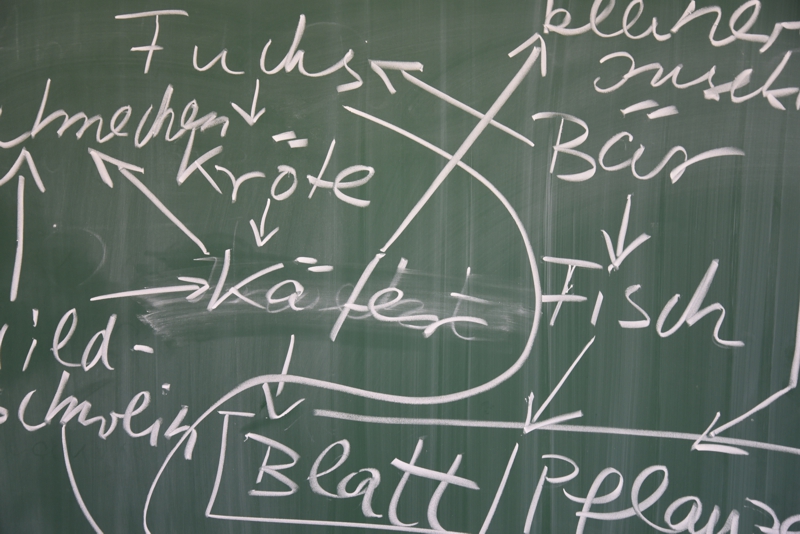 Fuchs
kleiner
Insekt
hnecken
Bär
Kröte
Käfer
Fisch
ild-
schwein
Blatt
Pflanze